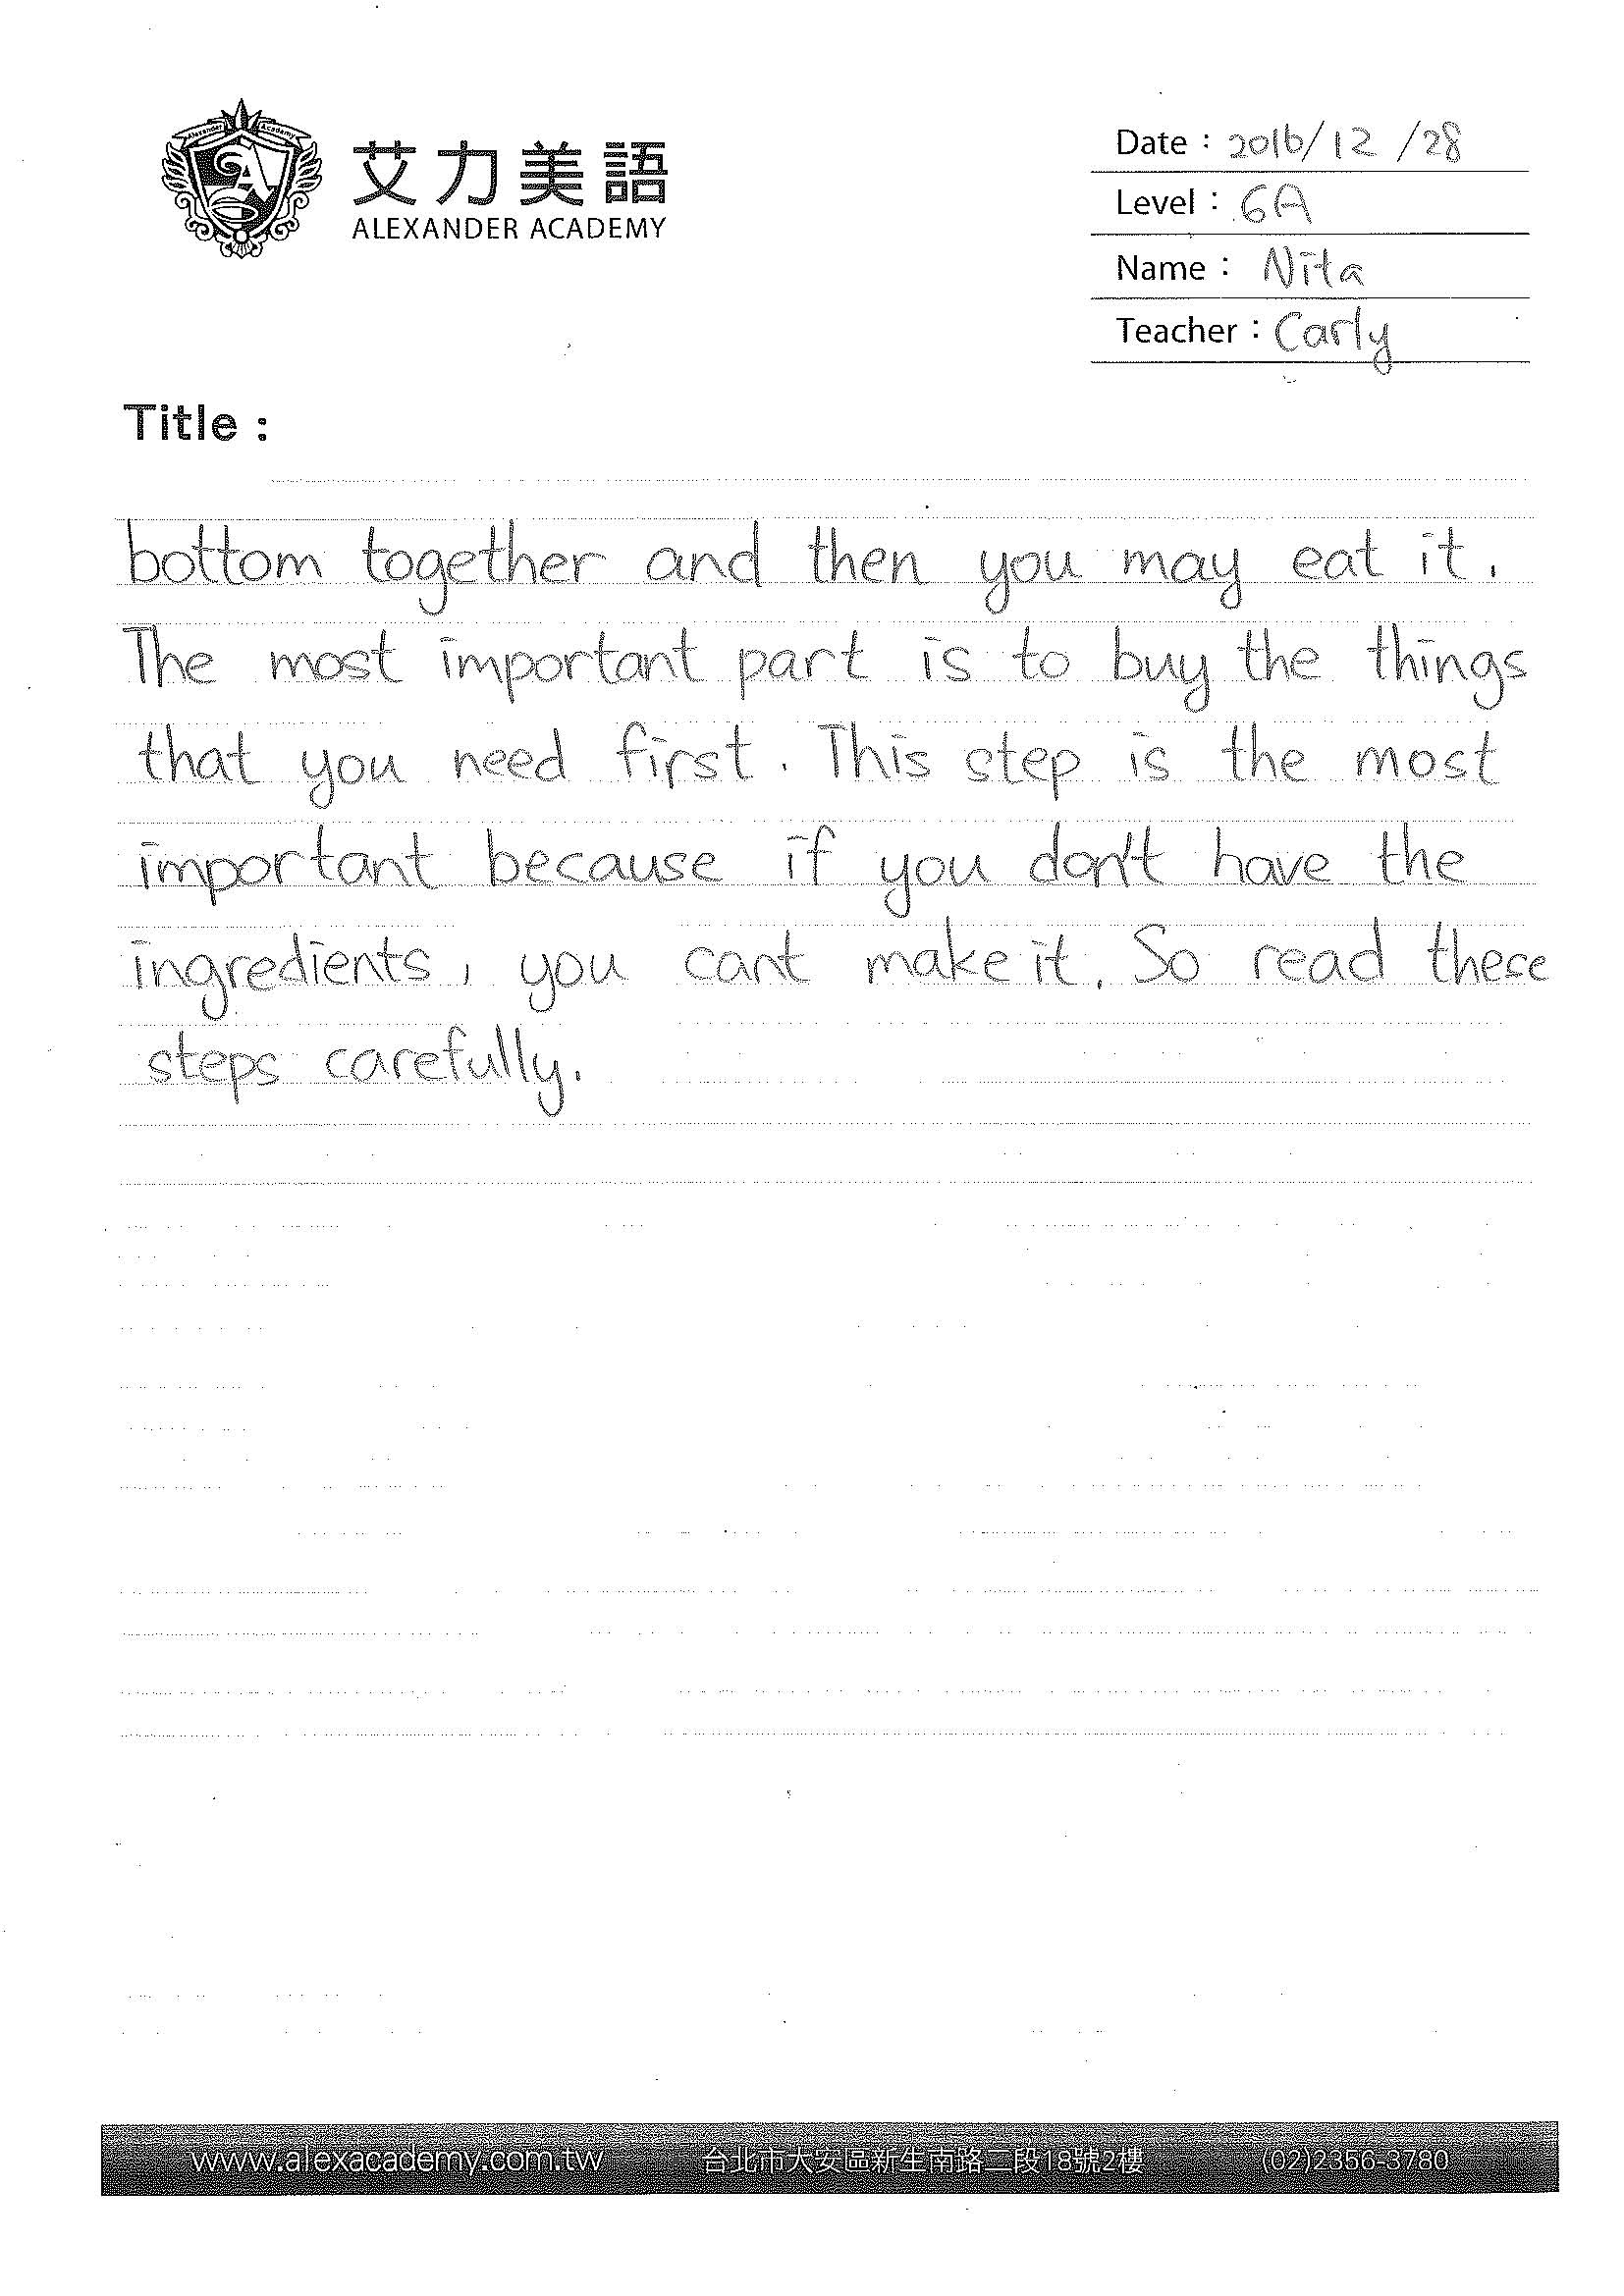 Alexander Academy
艾力美語
ALEXANDER ACADEMY
Date : 2016/12/28
Level : 6A
Name : Nita
Teacher : Carly
Title :
bottom together and then you may eat it.
The most important part is to buy the things
that you need first. This step is the most
important because if you don't have the
ingredients, you cant make it. So read these
steps carefully.
www.alexacademy.com.tw 台北市大安區新生南路二段18號2樓 (02)2356-3780